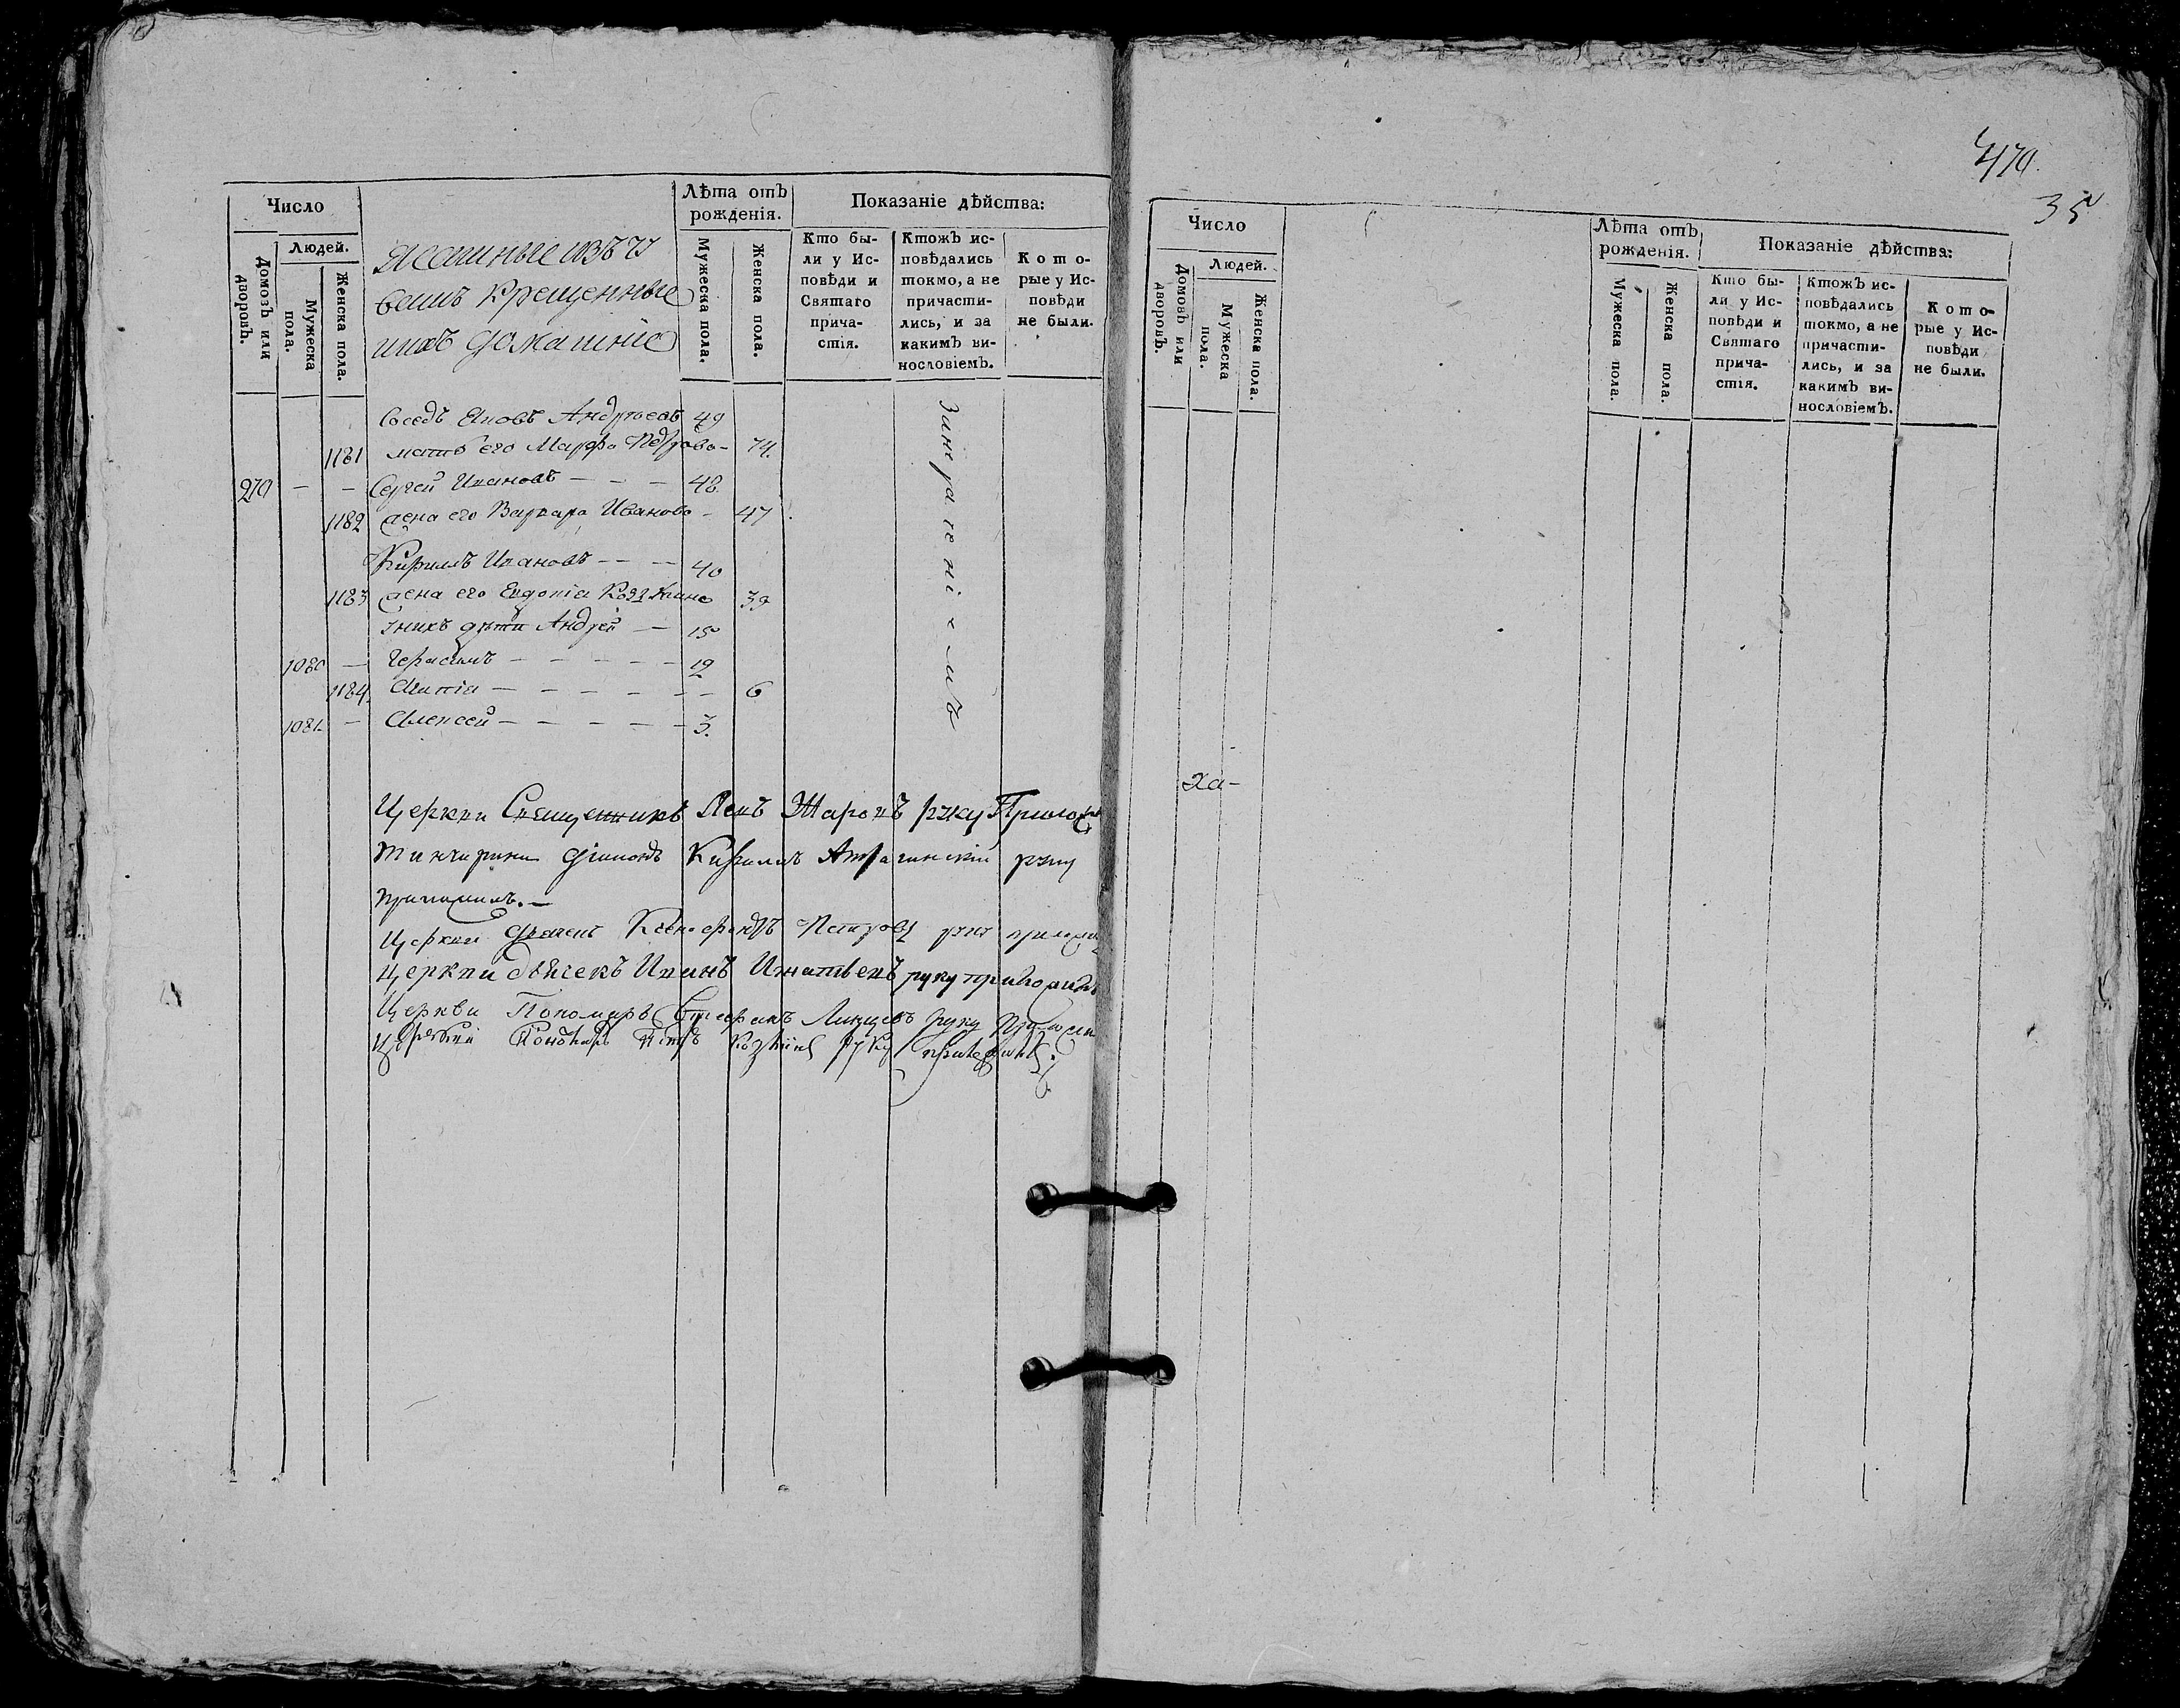 Число
Людей.
Домовъ или дворовъ.
Мужеска пола.
Женска пола.
Ясашные изъ чу
вашъ крещенные
ихъ домашніе
Лѣта отъ рожденія.
Мужеска пола.
Женска пола.
Показаніе дѣйства:
Кто бы-
ли у Ис-
повѣди и
Святаго
прича-
стія.
Ктожъ ис-
повѣдались
токмо, а не
причасти-
лись, и за
какимъ ви-
нословіемъ.
Кото-
рые у Ис-
повѣди
не были.
Соседъ Яковъ Андреевъ 49
1181 мать его Марфа Петрова - 74.
270 - - Сергей Ивановъ - - - 48
1182 жена его Варвара Иванова - 47
Кирилъ Ивановъ - - - 40
1183 жена его Евдокіа Козмина 39
У нихъ дѣти Андрей - 15
1080 - Герасимъ - - - - - 12
1184. - - - - - - 6
1081 - Алексей - - - - - 3.
Церкви Священникъ Левъ руку Приложилъ
діаконъ Кирилъ руку
приложилъ. -
Церкви дьячекъ Петровъ руку приложилъ
Церкви дьячекъ Иванъ Игнатьевъ руку приложилъ
Церкви Пономарь Стефанъ руку приложилъ
Церкви Пономарь Петръ Козминъ руку приложилъ
470.
35
Число
Людей.
Домовъ или дворовъ.
Мужеска пола.
Женска пола.
Лѣта отъ
рожденія.
Мужеска пола.
Женска пола.
Показаніе дѣйства:
Кто бы-
ли у Ис-
повѣди и
Святаго
прича-
стія.
Ктожъ ис-
повѣдались
токмо, а не
причасти-
лись, и за
какимъ ви-
нословіемъ.
Кото-
рые у Ис-
повѣди
не были.